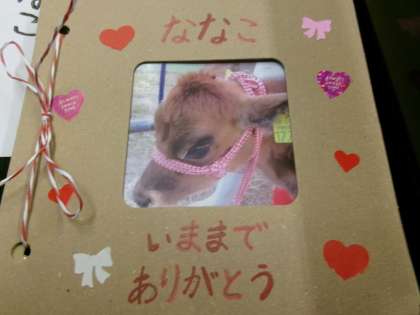 ななこ
いままで
ありがとう